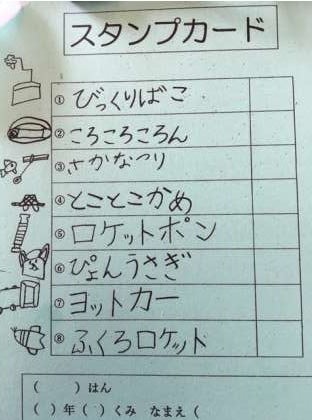 スタンプカード
① びっくりばこ
② ころころころん
③ さかなつり
④ とことこかめ
⑤ ロケットポン
⑥ ぴょんうさぎ
⑦ ヨットカー
⑧ ふくろロケット
( )はん
( )年( )くみ なまえ(